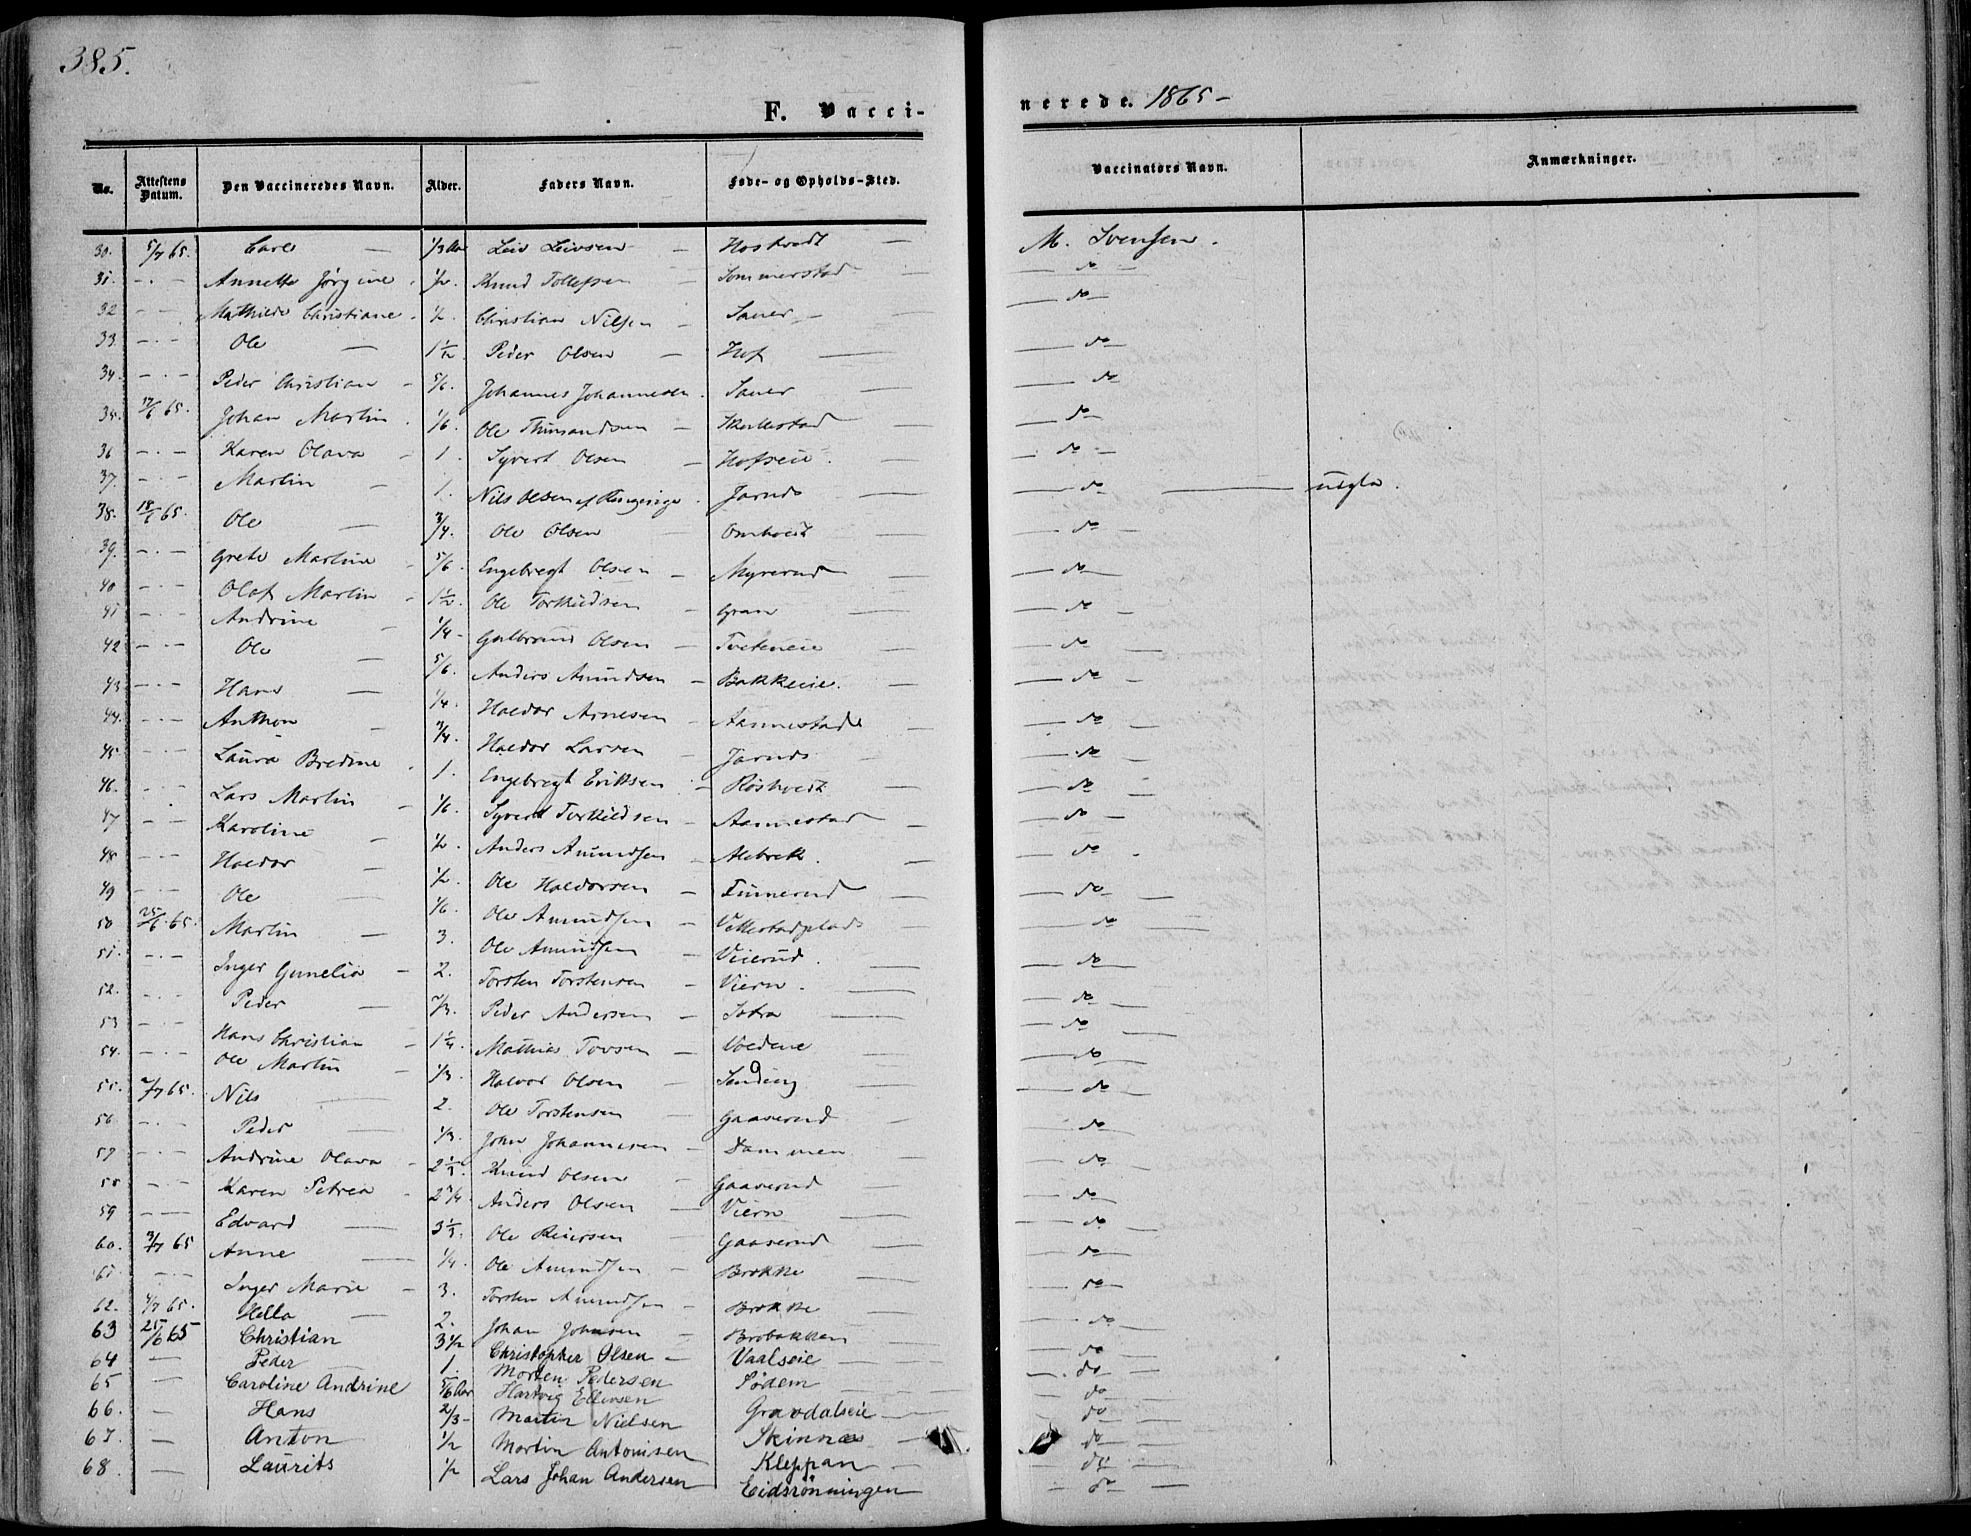 385.
F. Vacci-
nerede. 1865-
No. Attestens Datum. Den Vaccineredes Navn. Alder. Faders Navn. Føde- og Opholds-Sted. Vaccinators Navn. Anmærkninger.
30. 5/7 65. Carl — 1/3 Aar Leiv Leivsen — Hostvedt — M. Svensen.
31. - . - Annette Jørgine. 1/2. Knud Tollefsen — Sommerstad — do
32 - - Mathilde Christiane. 1/2. Christian Nilsen — Sauer — do
33. - . - Ole — 1 1/2. Peder Olsen — Hof — do
34. - . - Peder Christian - 5/6. Johannes Johannesen. Sauer — do
35. 17/6 65. Johan Martin. 1/6. Ole — do
36 - . - Karen Olava - 1. Syvert Olsen — Hofseie. — do
37. - . - Martin - 1. Nils Olsen af Ringerige. Jarnds — do — usgla.
38. 18/6 65. Ole — 3/4. Ole Olsen — Omhvedt — do
39. - . - Grete Martine - 5/6. Engebregt Olsen — Myrerud — do
40 - . - Olaf Martin - 1 1/2. Ole Torkildsen — Gran — do
41 - . - Andrine - 1/4. Gulbrand Olsen — Tveteneie — do
42 - . - Ole — 5/6. Anders Amundsen - Bakkeeie. — do
43 - . - Hans — 1/4. Haldor Arnesen — Aannestad — do
44. - . - Anthon - 3/4. Haldor Larsen — Jarnds — do
45. - . - Laura Bredine. 1. Engebregt Eriksen - Röshvedt — do
46. - . - Lars Martin - 1/6. Syvert Torkildsen — Aannestad — do
47 - - Karoline - 1/2. Anders Amundsen - — do
48. - - Haldor - 1/2. Ole Haldorsen — Finnerud — do
49 - . - Ole — 1/6. Ole Amundsen — Vettestadplads — do
50 25/6 65. Martin — 3. Ole Amundsen — Veierud. — do
51. - . - Inger Gunelia - 2. Torsten Torstensen — Viern. — do
52. - . - Peder — 2/3. Peder Andersen — Sotra — do
53 - . - Hans Christian - 1 1/4. Mathias Tovsen — Voldene — do
54. - . - Ole Martin - 1/3. Halvor Olsen — Sanding — do
55. 2/7 65. Nils — 2. Ole Torstensen — Gaaserud — do
56. - . - Peder — 1/3. John Johannesen — Dammen — do
57 - . - Andrine Olava - 2 1/3. Knud Olsen — Gaaserud — do
58 - - Karen Petrea - 2 3/4. Anders Olsen — Viern — do
59 - - Edvard — 3 1/3. Ole Reiersen — Gaaserud — do
60. 3/7 65 Anne — 1/4. Ole Amundsen — Brokke — do
61. - . - Inger Marie - 3. Torsten Amundsen - Brokke — do
62. 4/7 65. Hella — 2. Johan Johnsen — Brobakken — do
63 25/6 65 Christian 3 1/2 Christopher Olsen — Vaalseie — do
64 — Peder — 1. Morten Pedersen Södem — do
65 — Caroline Andrine 5/6 Aar Hartvig Ellevsen Gravdalseie — do
66. — Hans 2/3 - Martin Nielsen Skinnæs — do
67. — Anton 1/2 Martin Antonisen Kleppan — do
68. — Laurits 1/2 Lars Johan Andersen Eidsrönningen — do